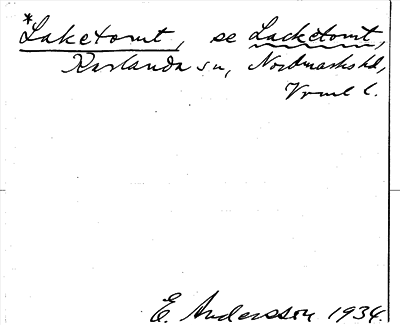 *Laketomt, se Lacketomt,
Karlanda sn, Nordmarks hd,
Vrml l.
E. Andersson 1934.